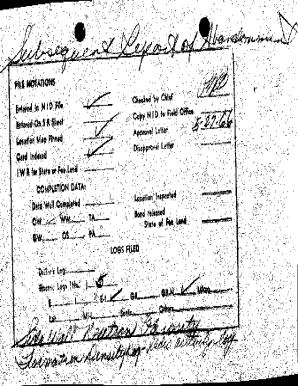 Subsequent Report of Abandonment
FILE NOTATIONS
Entered in NID File
Entered On S R Sheet
Location Map Pinned
Card Indexed
I W R for State or Fee Land
Checked by Chief
Copy NID to Field Office
Approval Letter 8-27-66
Disapproval Letter
COMPLETION DATA:
Date Well Completed
OW WW TA
GW OS PA
Location Inspected
Bond released
State of Fee Land
LOGS FILED
Driller's Log
Electric Logs (No.) 5
E I E-I GR GR-N Micro
Lat Mi-L Sonic Others
Side Wall Neutron Porosity
Formation Density Log - Radioactivity Log